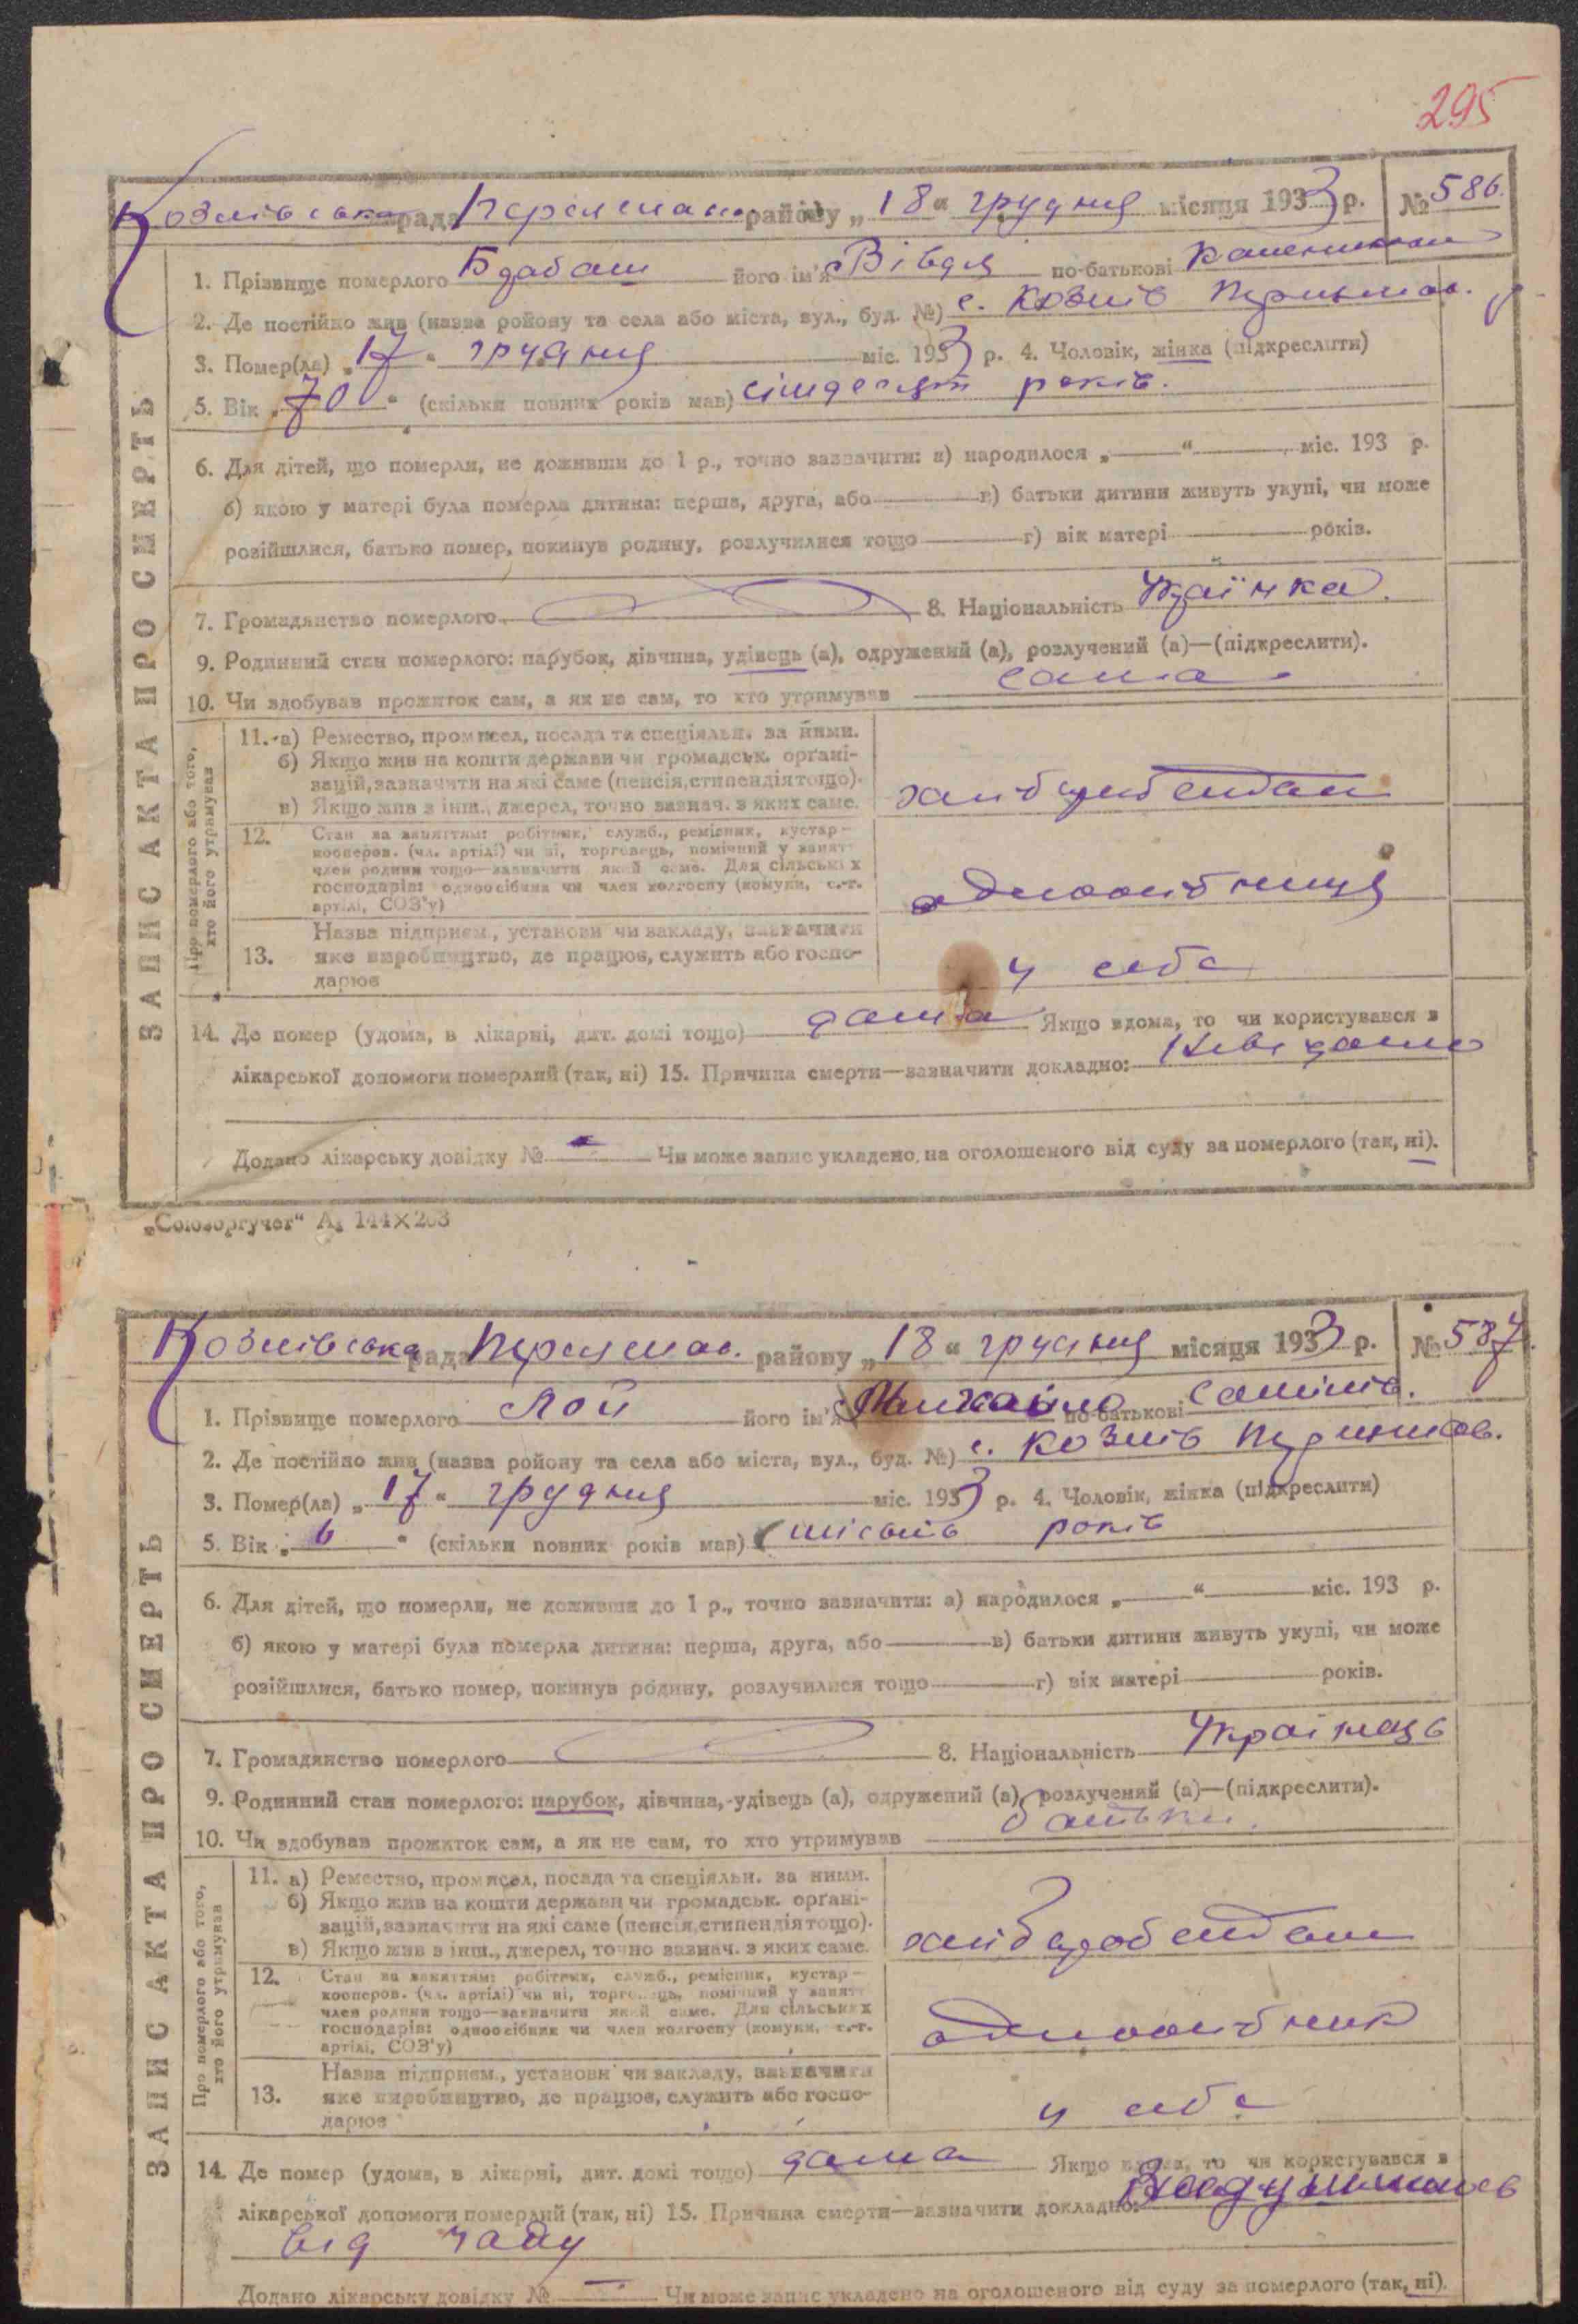 295
Козлівська рада Переяслав. району „18“ грудня місяця 1933 р. № 586.
1. Прізвище померлого його ім'я Вівдя по-батькові
2. Де постійно жив (назва ройону та села або міста, вул., буд. №) с. Козлів Переяслав.
3. Помер(ла) „17“ грудня міс. 1933 р. 4. Чоловік, жінка (підкреслити)
5. Вік „70“ (скільки повних років мав) сімдесят років.
6. Для дітей, що померли, не доживши до 1 р., точно зазначити: а) народилося „—“ — міс. 193 р.
б) якою у матері була померла дитина: перша, друга, або — в) батьки дитини живуть укупі, чи може
розійшлися, батько помер, покинув родину, розлучилися тощо — г) вік матері — років.
7. Громадянство померлого — 8. Національність Українка.
9. Родинний стан померлого: парубок, дівчина, удівець (а), одружений (а), розлучений (а)—(підкреслити).
10. Чи здобував прожиток сам, а як не сам, то хто утримував сама
ЗАПИС АКТА ПРО СМЕРТЬ
Про померлого або того, хто його утримував
11. а) Ремество, промисел, посада та спеціяльн. за ними.
б) Якщо жив на кошти держави чи громадськ. органі-
зацій, зазначити на які саме (пенсія, стипендія тощо).
в) Якщо жив з інш., джерел, точно зазнач. з яких саме.
хліборобством
12. Стан за заняттям: робітник, служб., ремісник, кустар—
кооперов. (чл. артілі) чи ні, торговець, помічний у занятт
член родини тощо—зазначити який саме. Для сільських
господарів: одноосібник чи член колгоспу (комуни, с.-г.
артілі, СОЗ'у)
одноосібниця
13. Назва підприєм., установи чи закладу, зазначити
яке виробництво, де працює, служить або госпо-
дарює
у себе
14. Де помер (удома, в лікарні, дит. домі тощо) дома Якщо вдома, то чи користувався з
лікарської допомоги померлий (так, ні) 15. Причина смерти—зазначити докладно: Невідомо
Додано лікарську довідку № — Чи може запис укладено, на оголошеного від суду за померлого (так, ні).
„Союзоргучет“ А₆ 144×203
Козлівська рада Переяслав. району „18“ грудня місяця 1933 р. № 587.
1. Прізвище померлого Лой його ім'я Михайло по-батькові
2. Де постійно жив (назва ройону та села або міста, вул., буд. №) с. Козлів Переяслав.
3. Помер(ла) „17“ грудня міс. 1933 р. 4. Чоловік, жінка (підкреслити)
5. Вік „6“ (скільки повних років мав) шість років
6. Для дітей, що померли, не доживши до 1 р., точно зазначити: а) народилося „—“ — міс. 193 р.
б) якою у матері була померла дитина: перша, друга, або — в) батьки дитини живуть укупі, чи може
розійшлися, батько помер, покинув родину, розлучилися тощо — г) вік матері — років.
7. Громадянство померлого — 8. Національність Українець
9. Родинний стан померлого: парубок, дівчина, удівець (а), одружений (а), розлучений (а)—(підкреслити).
10. Чи здобував прожиток сам, а як не сам, то хто утримував батьки.
ЗАПИС АКТА ПРО СМЕРТЬ
Про померлого або того, хто його утримував
11. а) Ремество, промисел, посада та спеціяльн. за ними.
б) Якщо жив на кошти держави чи громадськ. органі-
зацій, зазначити на які саме (пенсія, стипендія тощо).
в) Якщо жив з інш., джерел, точно зазнач. з яких саме.
хліборобством
12. Стан за заняттям: робітник, служб., ремісник, кустар—
кооперов. (чл. артілі) чи ні, торговець, помічний у занятт
член родини тощо—зазначити який саме. Для сільських
господарів: одноосібник чи член колгоспу (комуни, с.-г.
артілі, СОЗ'у)
одноосібник
13. Назва підприєм., установи чи закладу, зазначити
яке виробництво, де працює, служить або госпо-
дарює
у себе
14. Де помер (удома, в лікарні, дит. домі тощо) дома Якщо вдома, то чи користувався з
лікарської допомоги померлий (так, ні) 15. Причина смерти—зазначити докладно:
від чаду
Додано лікарську довідку № — Чи може запис укладено на оголошеного від суду за померлого (так, ні).